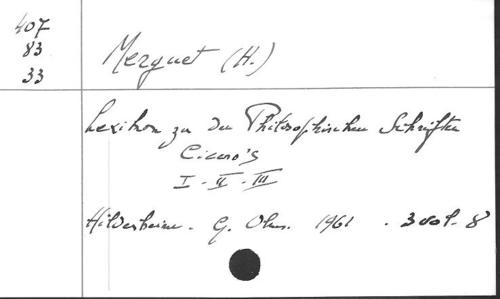 407
83
33
Merguet (H.)
Lexikon zu den Philosophischen Schriften
Cicero's
I - II - III
Hildesheim. G. Olms. 1961. 3 vol. 8